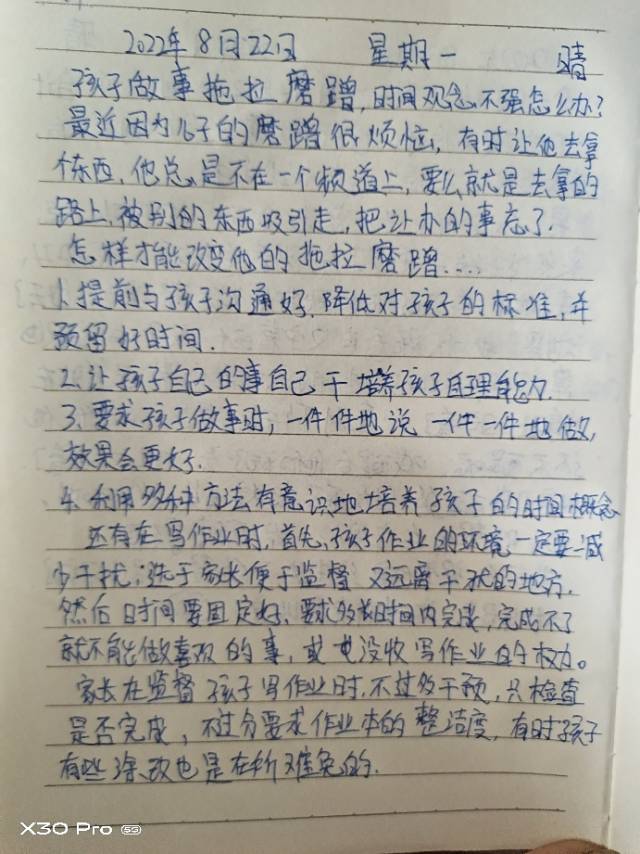 2022年8月22日 星期一 晴
孩子做事拖拉磨蹭,时间观念不强怎么办?
最近因为儿子的磨蹭很烦恼,有时让他去拿
个东西,他总是不在一个频道上,要么就是去拿的
路上,被别的东西吸引走,把让办的事忘了.
怎样才能改变他的拖拉磨蹭....
1.提前与孩子沟通好.降低对孩子的标准,并
预留好时间.
2.让孩子自己的事自己干培养孩子自理能力.
3.要求孩子做事时,一件件地说一件一件地做,
效果会更好.
4.利用多种方法有意识地培养孩子的时间概念
还有在写作业时,首先,孩子作业的环境一定要减
少干扰,选于家长便于监督又远离干扰的地方.
然后时间要固定好,要求多长时间内完成,完成不了
就不能做喜欢的事,或也没收写作业的权力。
家长在监督孩子写作业时,不过多干预,只检查
是否完成,不过分要求作业本的整洁度,有时孩子
有些涂改也是在所难免的.
X30 Pro 5G